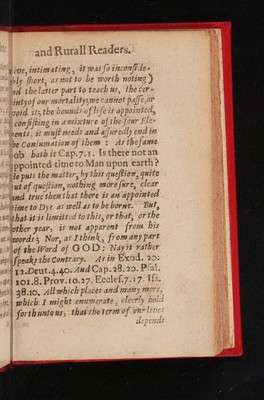 and Rurall Readers.
live, intimating, it was so inconside-
rably short, as not to be worth noting)
and the latter part to teach us, the cer-
tainty of our mortality; we cannot passe, or
avoid it; the bounds of life is appointed,
consisting in a mixture of the four Ele-
ments, is must needs and assuredly end in
the Consumation of them: As the same
Job hath it Cap. 7.1. Is there not an
appointed time to Man upon earth?
He puts the matter, by this question, quite
out of question, nothing more sure, clear
and true then that there is an appointed
time to Dye as well as to be borne. But,
that it is limitted to this, or that, or the
other year, is not apparent from his
words; Nor, as I think, from any part
of the Word of GOD: Nay it rather
speaks the Contrary. As in Exod. 20:
12. Deut. 4.40. And Cap. 28. 20. Psal.
101.8. Prov. 10.27. Eccles. 7.17. Isa.
38.10. All which places and many more,
which I might enumerate, cleerly hold
forth unto us, that the term of our lives
depends